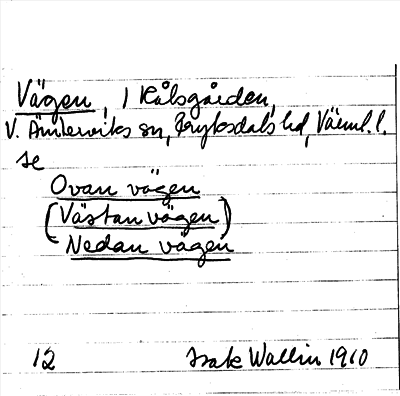 Vägen, i Kålsgården,
V. Ämterviks sn, Fryksdals hd, Värml. l.
se
Ovan vägen
(Västan vägen)
Nedan vägen
12 Isak Wallin 1910